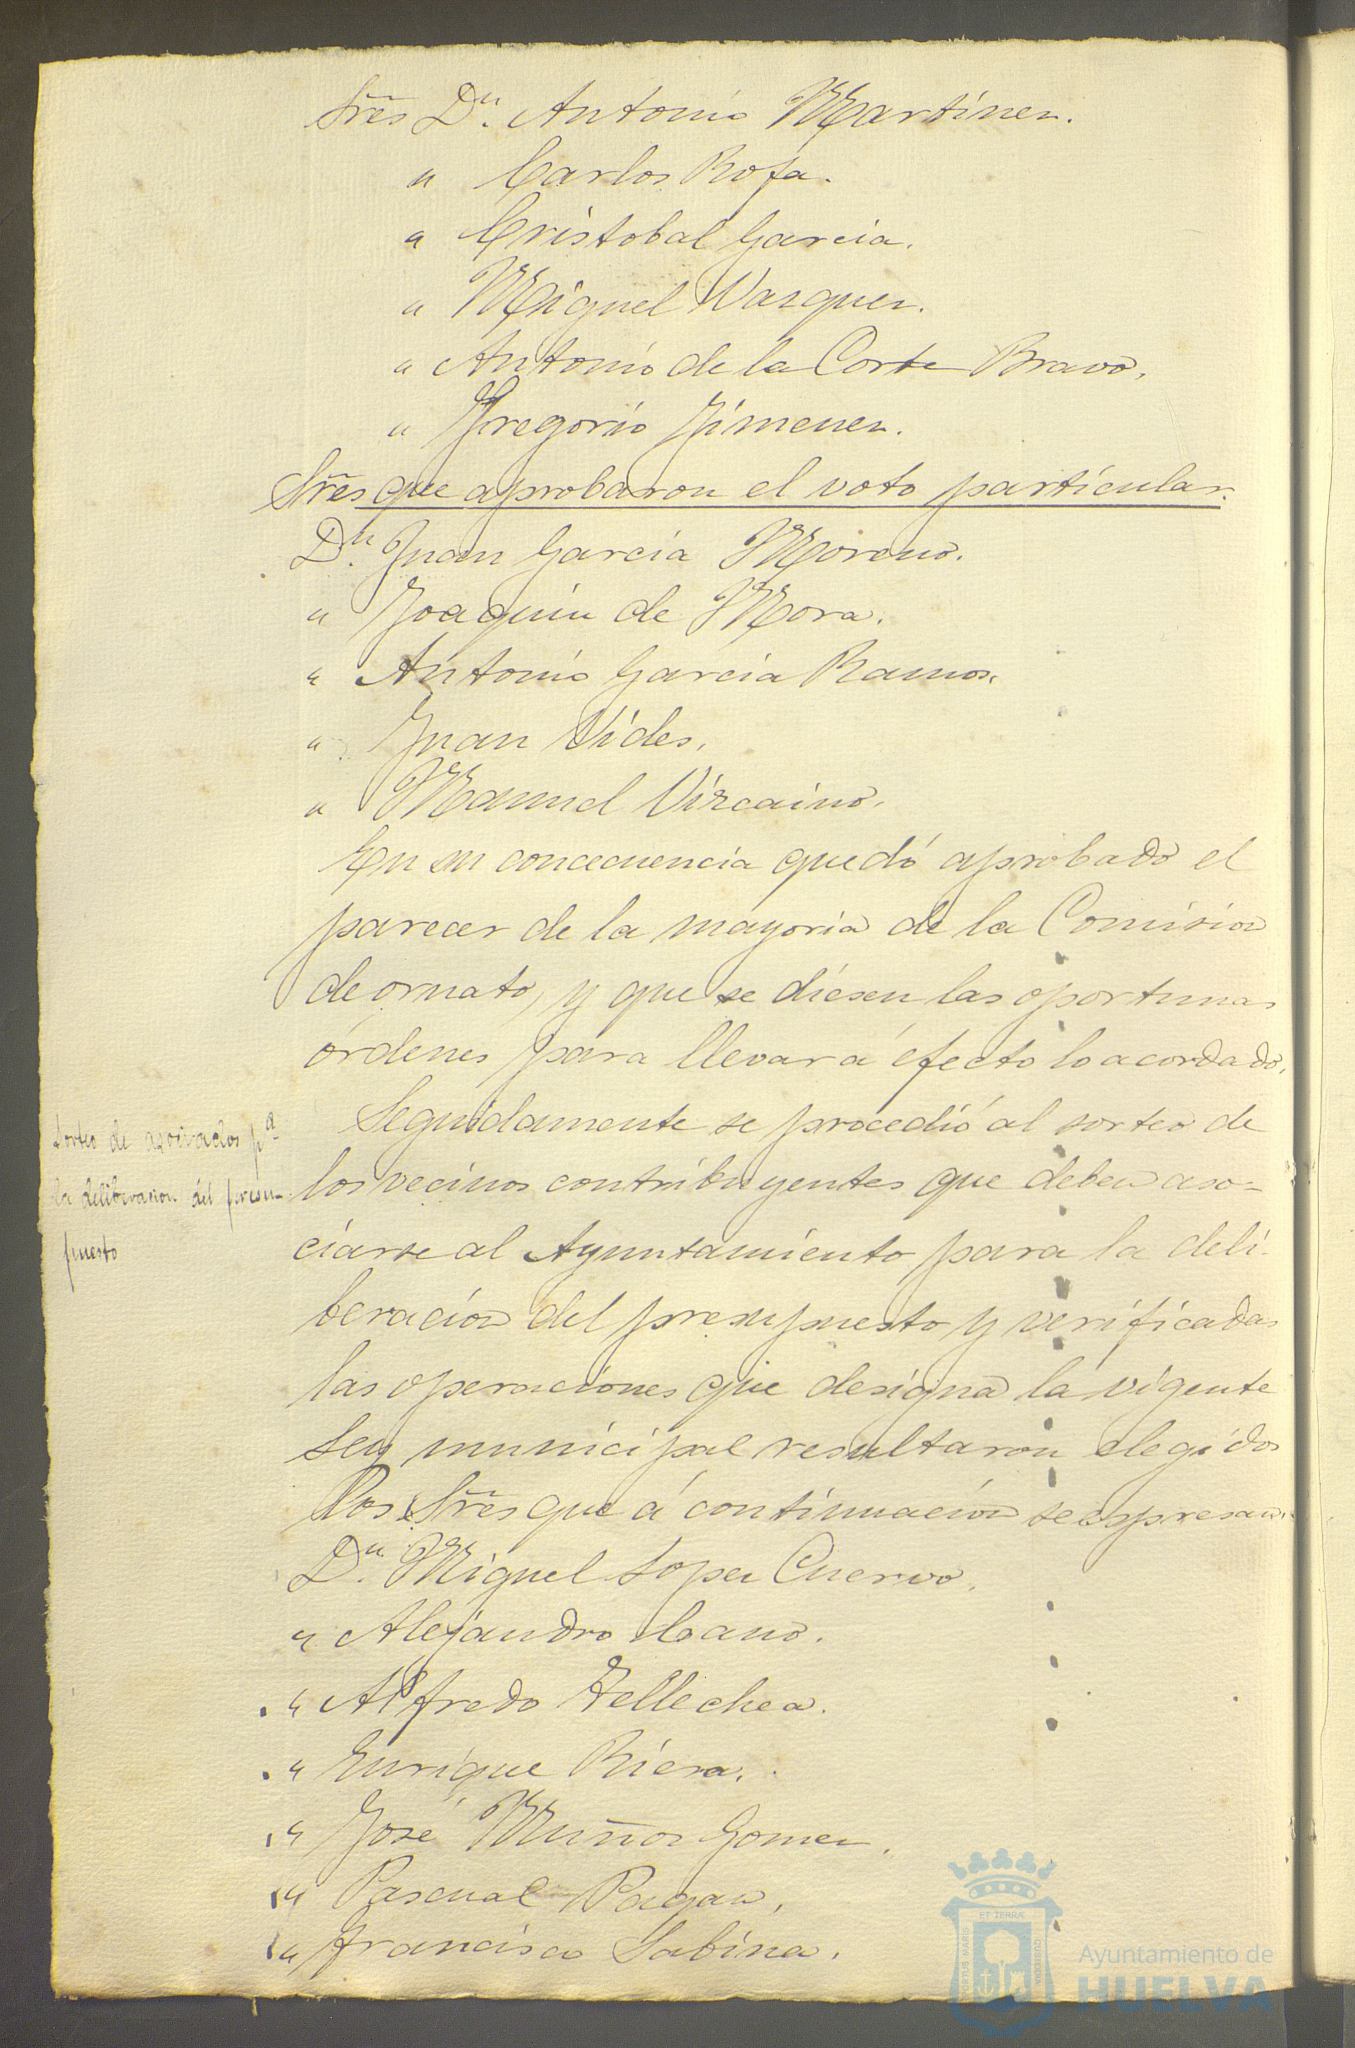 Sres Dn. Antonio Martinez.
" Carlos Rofa.
" Cristobal Garcia.
" Miguel Vazquez.
" Antonio de la Corte Bravo.
" Gregorio Jimenez.
Sres que aprobaron el voto particular.
Dn. Juan Garcia Moreno.
" Joaquin de Mora.
" Antonio Garcia Ramos.
" Juan Vides.
" Manuel Vizcaino.
En su concecuencia quedó aprobado el
parecer de la mayoria de la Comision
de ornato, y que se diesen las oportunas
órdenes para llevar á efecto lo acordado.
Sorteo de asociados pa
la deliberacion del presu-
puesto
Seguidamente se procedió al sorteo de
los vecinos contribuyentes que deben aso-
ciarse al Ayuntamiento para la deli-
beracion del presupuesto y verificadas
las operaciones que designa la vigente
Ley municipal resultaron elegidos
los Sres que á continuacion se espresan.
Dn. Miguel Lopez Cuervo.
" Alejandro Cano.
" Alfredo Tellechea.
" Enrique Riera.
" José Muñoz Gomez.
" Pascual Pagan.
" Francisco Sabina.
Ayuntamiento de
HUELVA